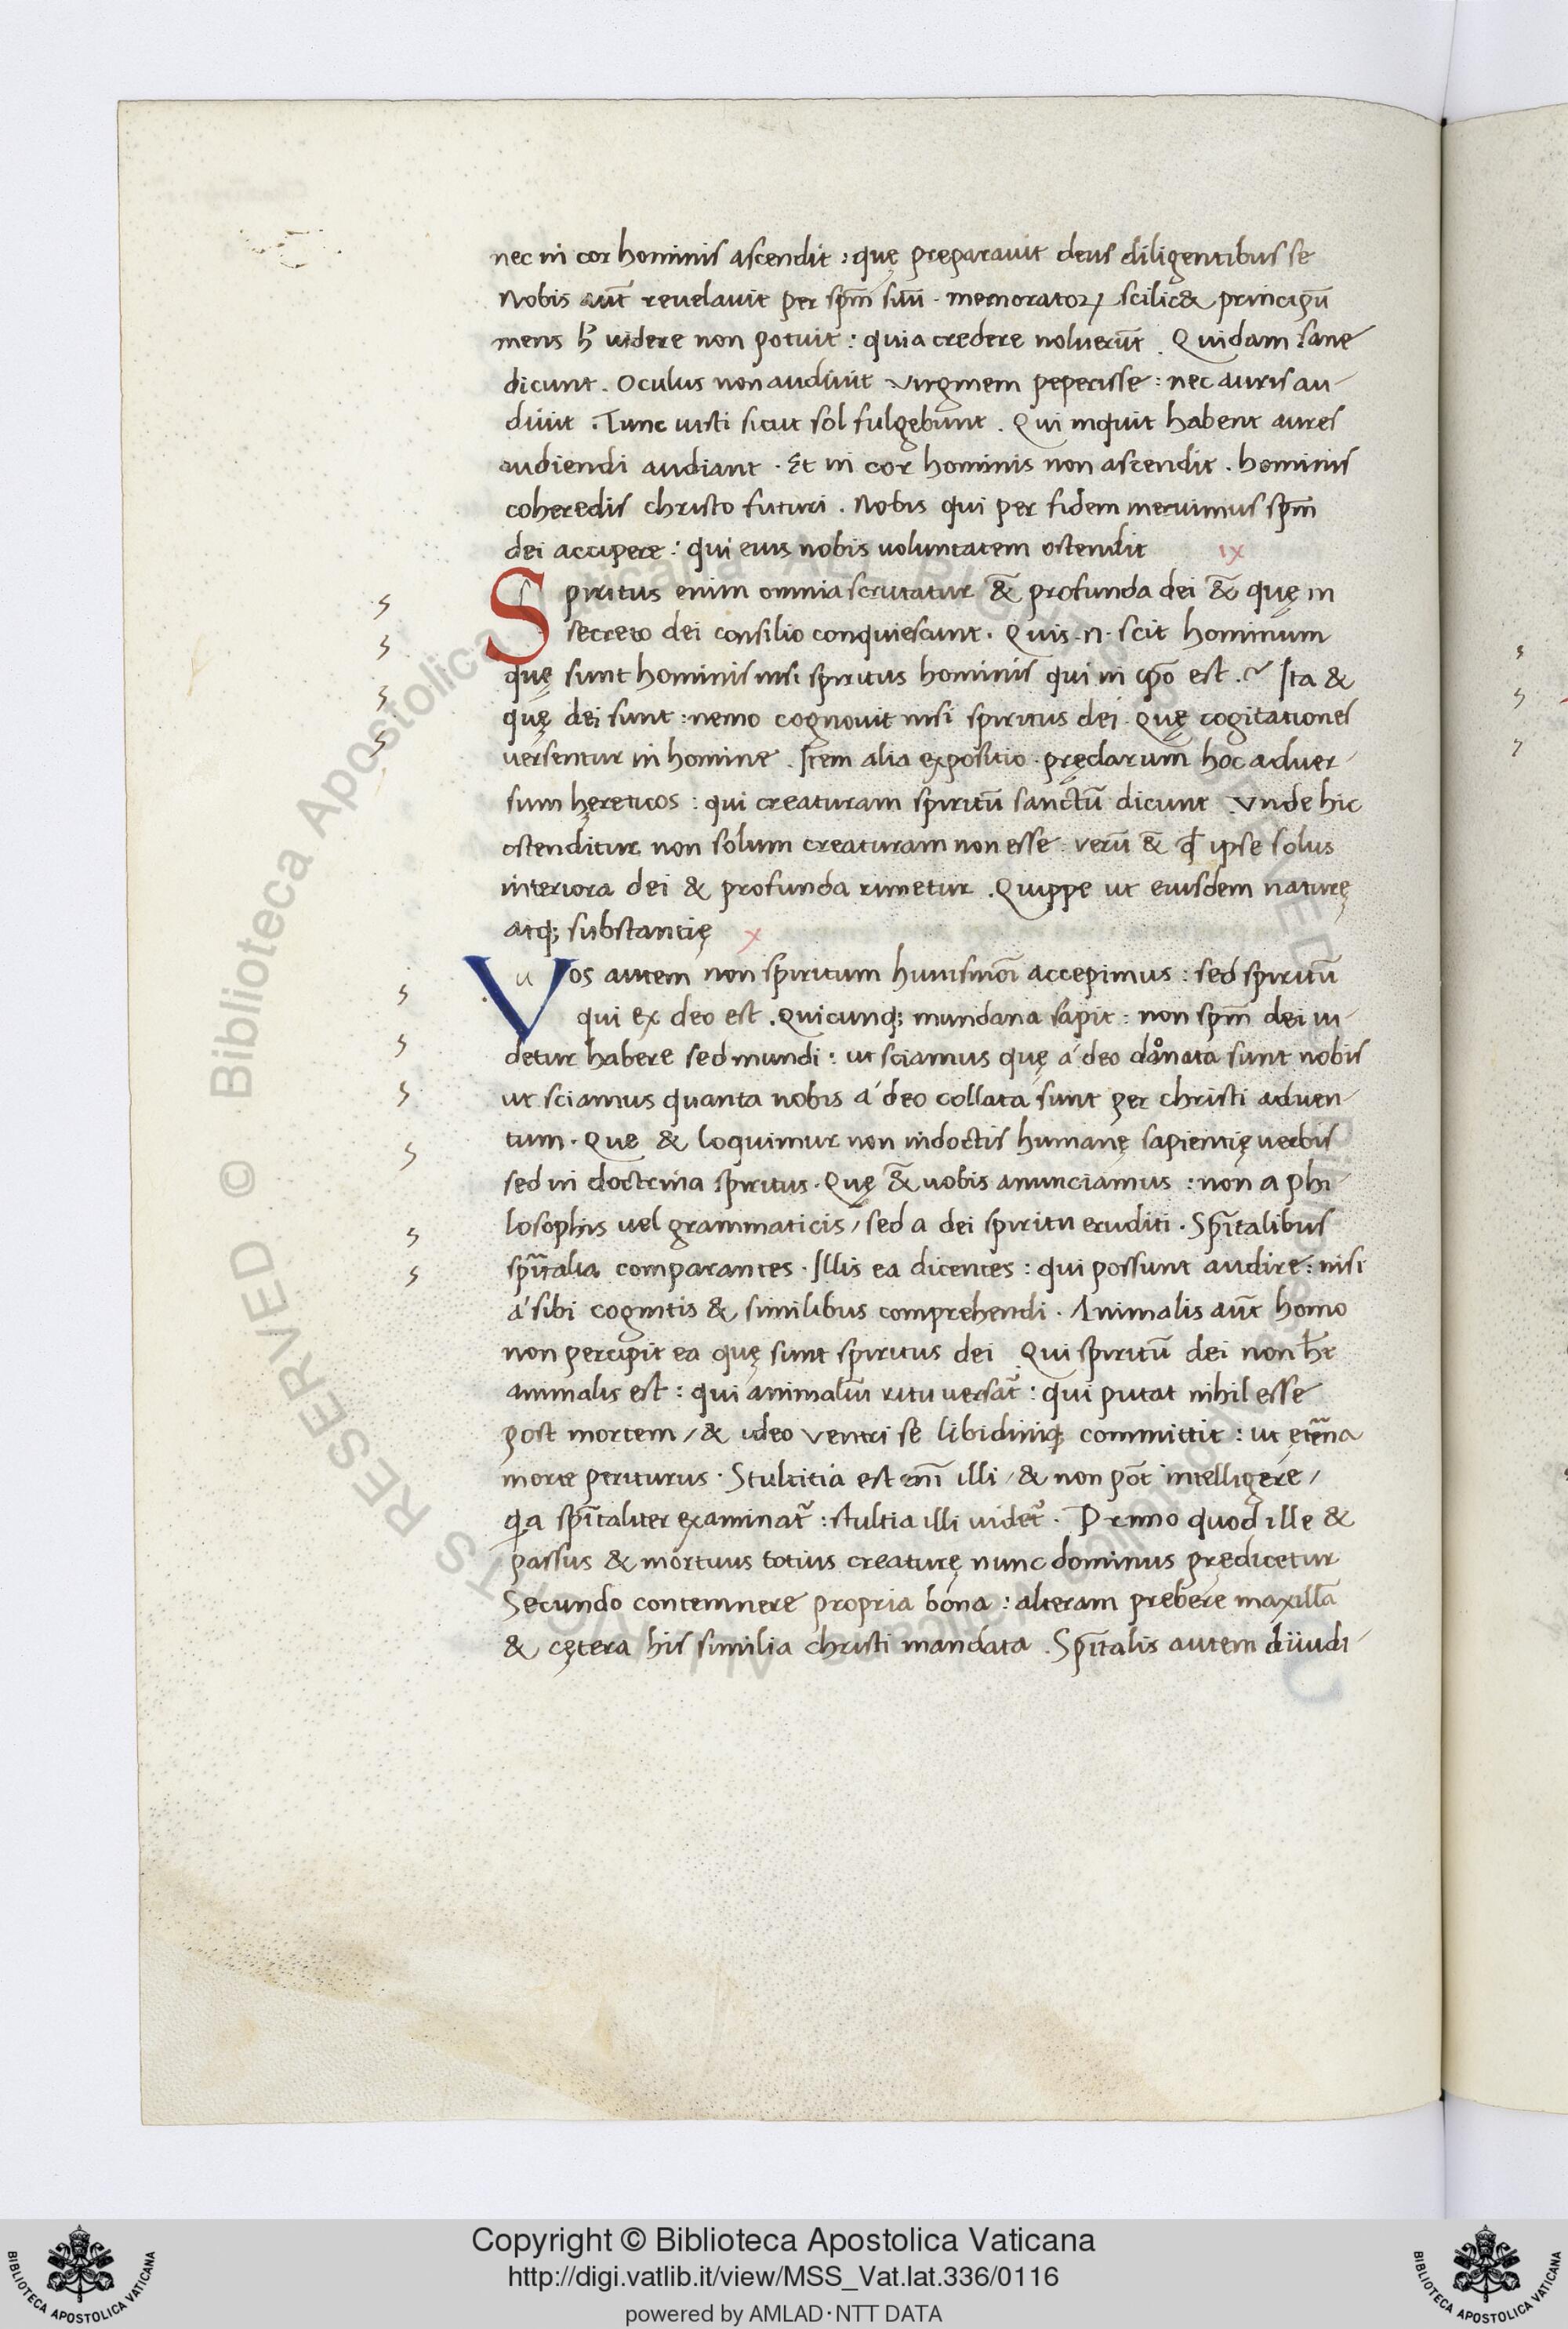 nec in cor hominis ascendit : quę preparauit deus diligentibus se
Nobis aut̄ reuelauit per sp̄m suū . memoratoꝝ scilic& principū
mens h̄ uidere non potuit : quia credere noluerūt . Quidam sane
dicunt . Oculus non audiuit virginem peperisse : nec auris au-
diuit . Tunc iusti sicut sol fulgebunt . Qui inquit habent aures
audiendi audiant . Et in cor hominis non ascendit . hominis
coheredis christo futuri . Nobis qui per fidem meruimus sp̄m
dei accipere : qui eius nobis voluntatem ostendit ix
Spiritus enim omnia scrutatur &̄ profunda dei &̄ quę in
secreto dei consilio conquiescunt . Quis .n. scit hominum
quę sunt hominis nisi spiritus hominis qui in ip̄o est . ~ Ita &
quę dei sunt : nemo cognouit nisi spiritus dei . Quę cogitationes
versentur in homine . Item alia expositio . pręclarum hoc aduer-
sum hęreticos : qui creaturam spiritū sanctū dicunt . Vnde hic
ostenditur non solum creaturam non esse : verū &̄ ꝙ ipse solus
interiora dei & profunda rimetur . Quippe ut eiusdem naturę
atq; substantię x
Vos autem non spiritum huiusmōi accepimus : sed spiritū
qui ex deo est . Quicunq; mundana sapit : non sp̄m dei ui-
detur habere sed mundi : ut sciamus quę á deo donata sunt nobis
ut sciamus quanta nobis á deo collata sunt per christi aduen-
tum . Que & loquimur non in doctis humanę sapientię uerbis
sed in doctrina spiritus . Quę &̄ uobis anunciamus : non a phi-
losophis uel grammaticis / sed a dei spiritu eruditi . Spīt̄alibus
spīt̄alia comparantes . Illis ea dicentes : qui possunt audire : nisi
á sibi cognitis & similibus comprehendi . Animalis aut̄ homo
non percipit ea quę sunt spiritus dei Qui spiritū dei non h̄t
animalis est : qui animaliū ritu versat̄ : qui putat nihil esse
post mortem / & ideo ventri se libidiniq; committit : ut ęt̄na
morte periturus . Stultitia est eni̅ illi / & non pōt intelligere /
q̇a spīt̄aliter examinat̄ : stultia illi videt̄ . Primo quod ille &
passus & mortuus totius creaturę nunc dominus prędicetur
Secundo contemnere propria bona : alteram prebere maxillā
& cętera his similia christi mandata . Spīt̄alis autem diiudi-
Copyright © Biblioteca Apostolica Vaticana
http://digi.vatlib.it/view/MSS_Vat.lat.336/0116
powered by AMLAD·NTT DATA
BIBLIOTECA APOSTOLICA VATICANA
BIBLIOTECA APOSTOLICA VATICANA